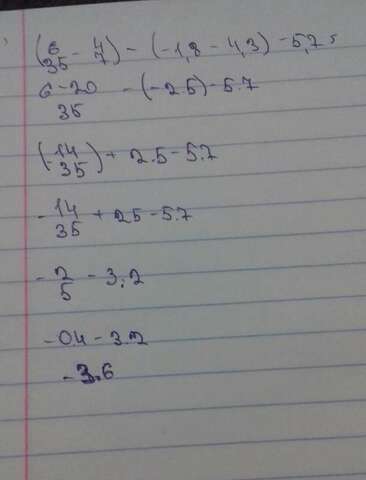 (6/35 - 4/7) - (-1,8 - 4,3) - 5,7 =
6-20/35 - (-2.5) - 5.7
(-14/35) + 2.5 - 5.7
-14/35 + 25 - 5.7
-2/5 - 3.2
-04 - 3.2
-3.6